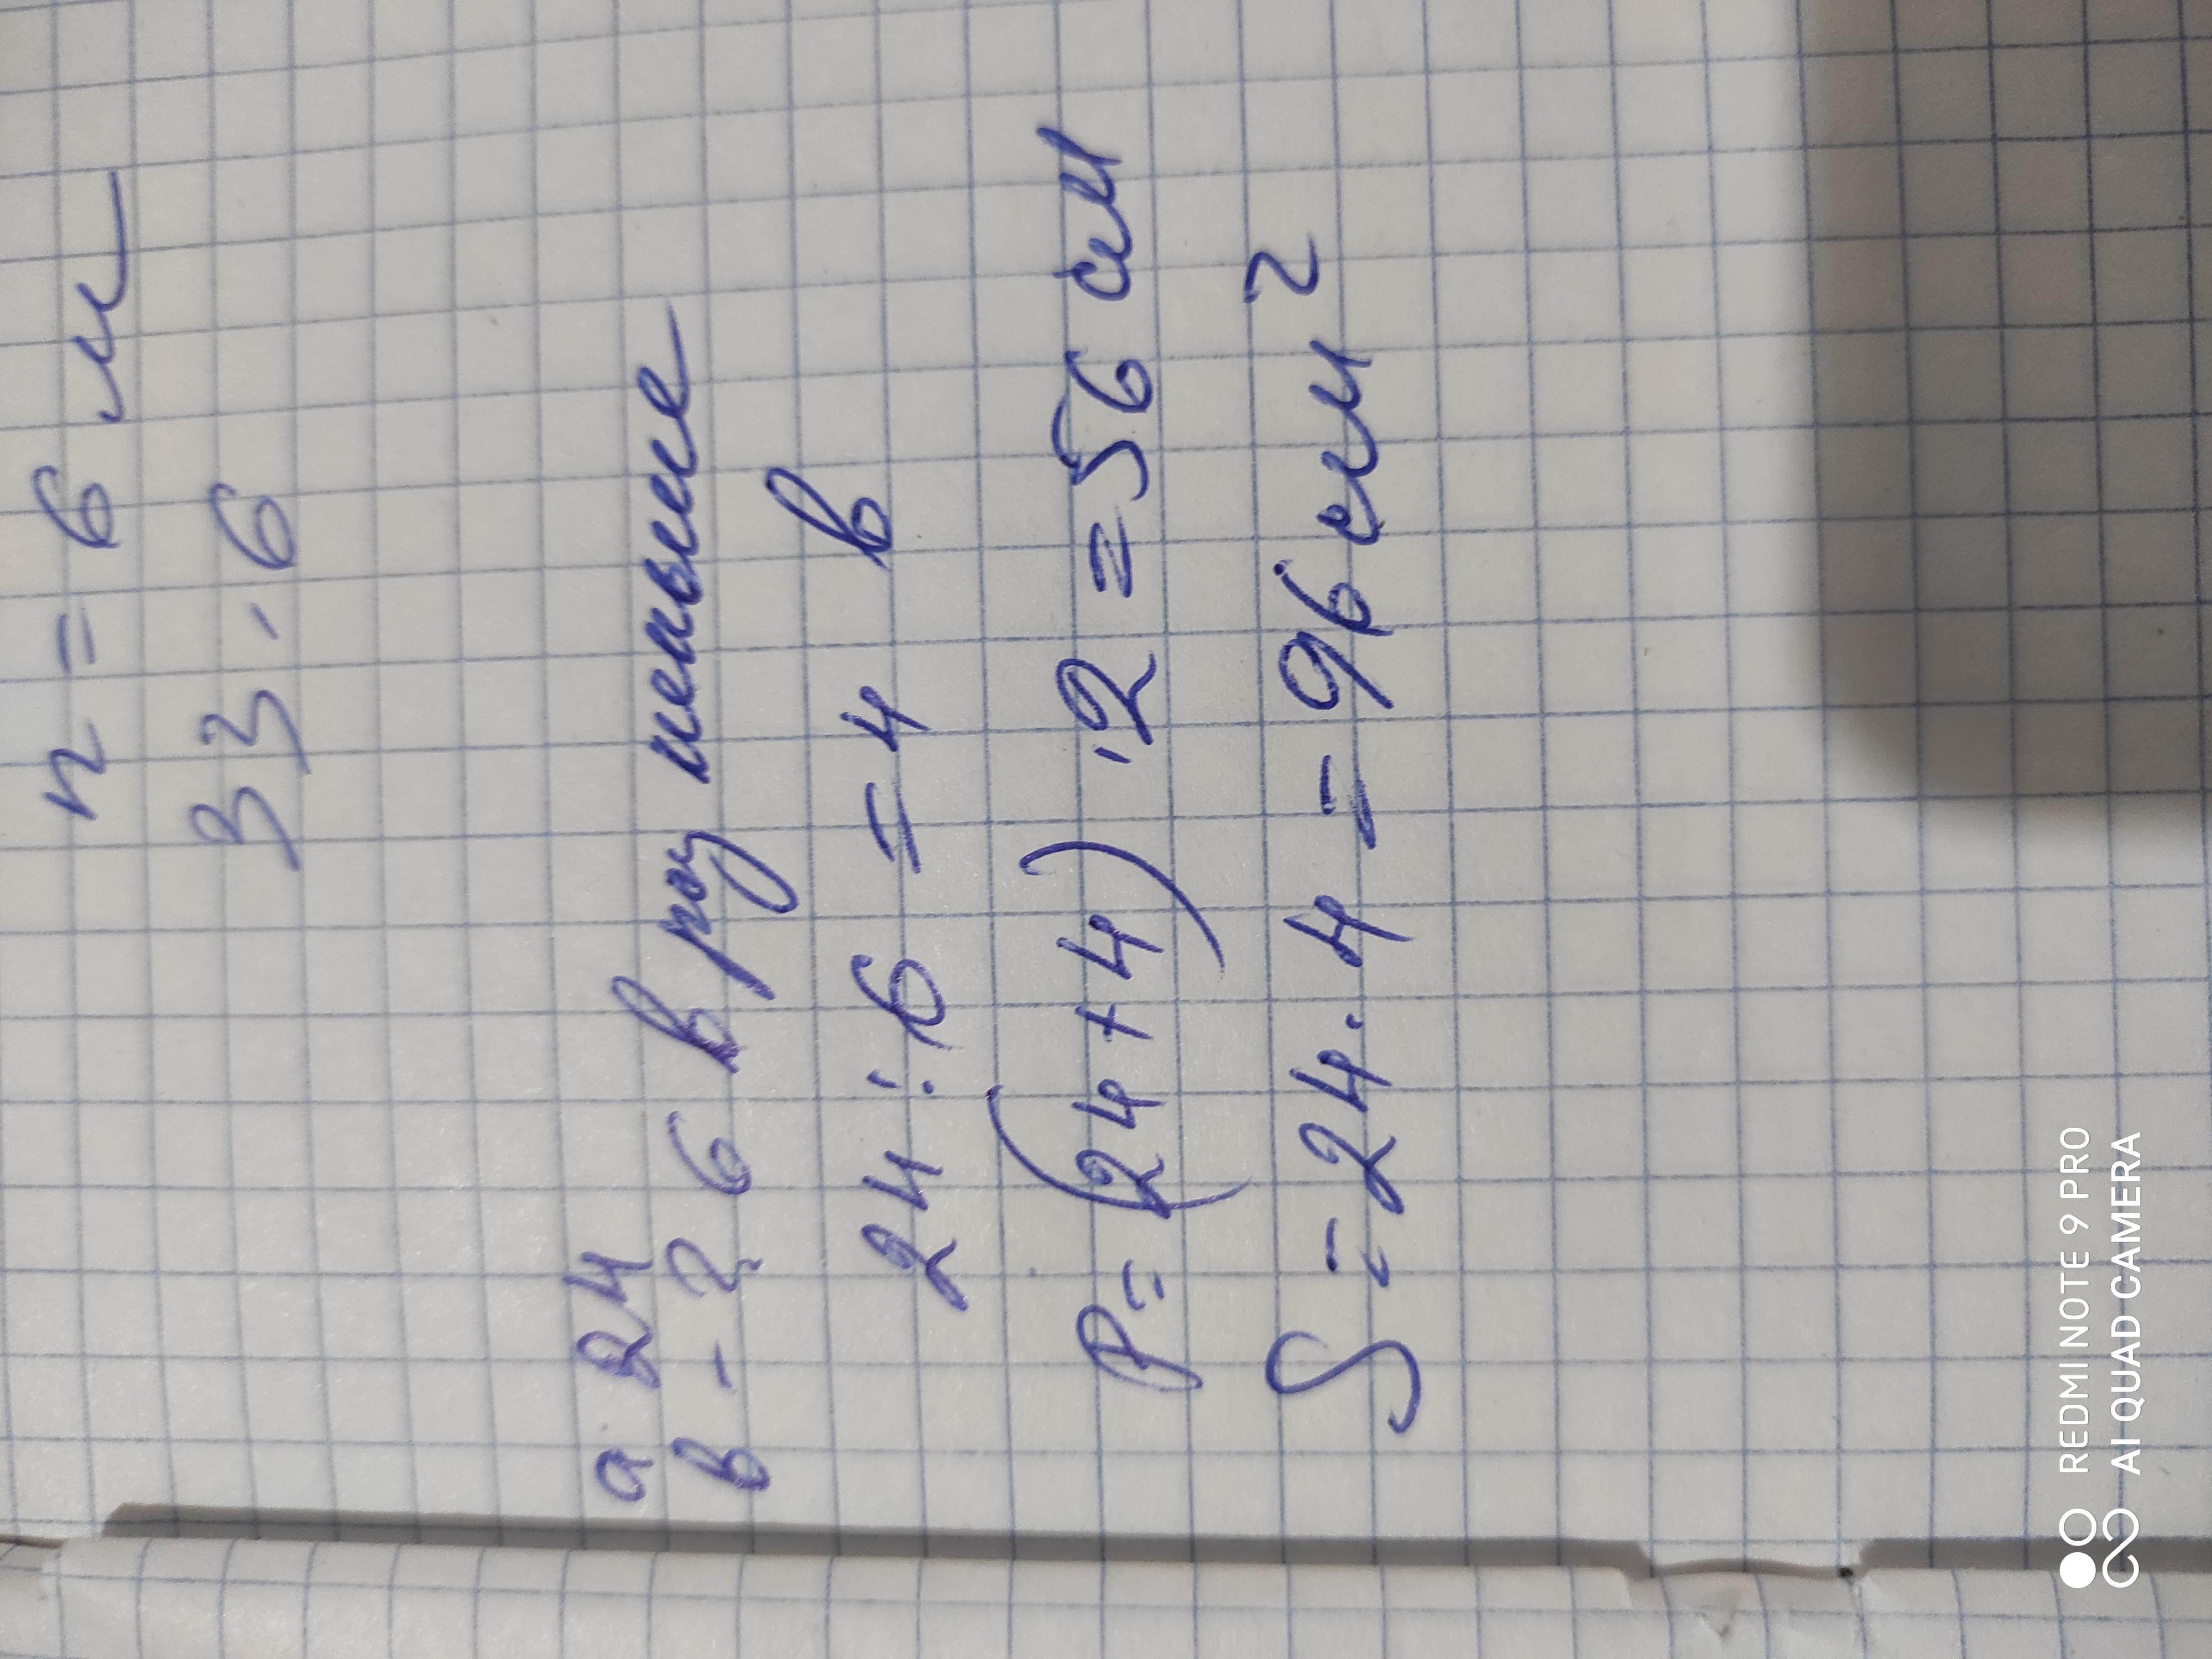 n = 6 м
33.6
a 24
в - ? 6 в раз меньше
24 : 6 = 4 в
P = (24 + 4) · 2 = 56 см
S = 24 · 4 = 96 см 2
REDMI NOTE 9 PRO
AI QUAD CAMERA